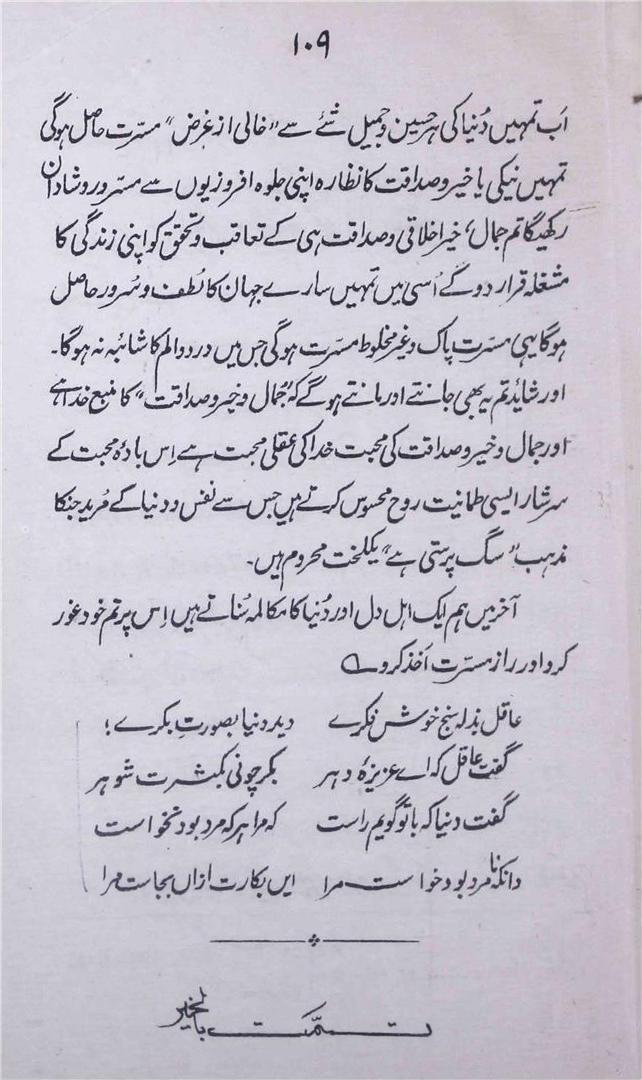 ۱۰۹
اَب تمہیں دُنیا کی ہر حسین و جمیل شئے سے "خالی از غرض" مسرت حاصل ہوگی
تمہیں نیکی یا خیر و صداقت کا نظارہ اپنی جلوہ افروزیوں سے مسرور و شادان
رکھیگا تم جمال، خیر اخلاقی و صداقت ہی کے تعاقب و تحقق کو اپنی زندگی کا
مشغلہ قرار دوگے اُسی میں تمہیں سارے جہان کا لُطف و سُرور حاصل
ہوگا یہی مسرت پاک و غیر مخلوط مسرت ہوگی جس میں درد و الم کا شائبہ نہ ہوگا۔
اور شاید تم یہ بھی جانتے اور مانتے ہوگے کہ "جمال و خیر و صداقت" کا منبع خدا ہے
اور جمال و خیر و صداقت کی محبت خدا کی عقلی محبت ہے اِس بادۂ محبت کے
سرشار ایسی طمانیت روح محسوس کرتے ہیں جس سے نفس و دنیا کے مُرید جنکا
مذہب "سگ پرستی ہے" یکلخت محروم ہیں۔
آخر میں ہم ایک اہل دل اور دُنیا کا مکالمہ سُناتے ہیں اِس پر تم خود غور
کرو اور راز مسرّت اَخذ کرو ے
عاقل بذلہ سنج خوش فکرے دید دنیا بصورتِ بکرے؛
گفت عاقل کہ اے عزیزۂ دہر بکر چونی بکثرت شوہر
گفت دنیا کہ باتو گویم راست کہ مرا ہر کہ مرد بود نخواست
وانکہ نامرد بود خواست مرا ایں بکارت ازاں بجاست مرا
تمّت بالخیر